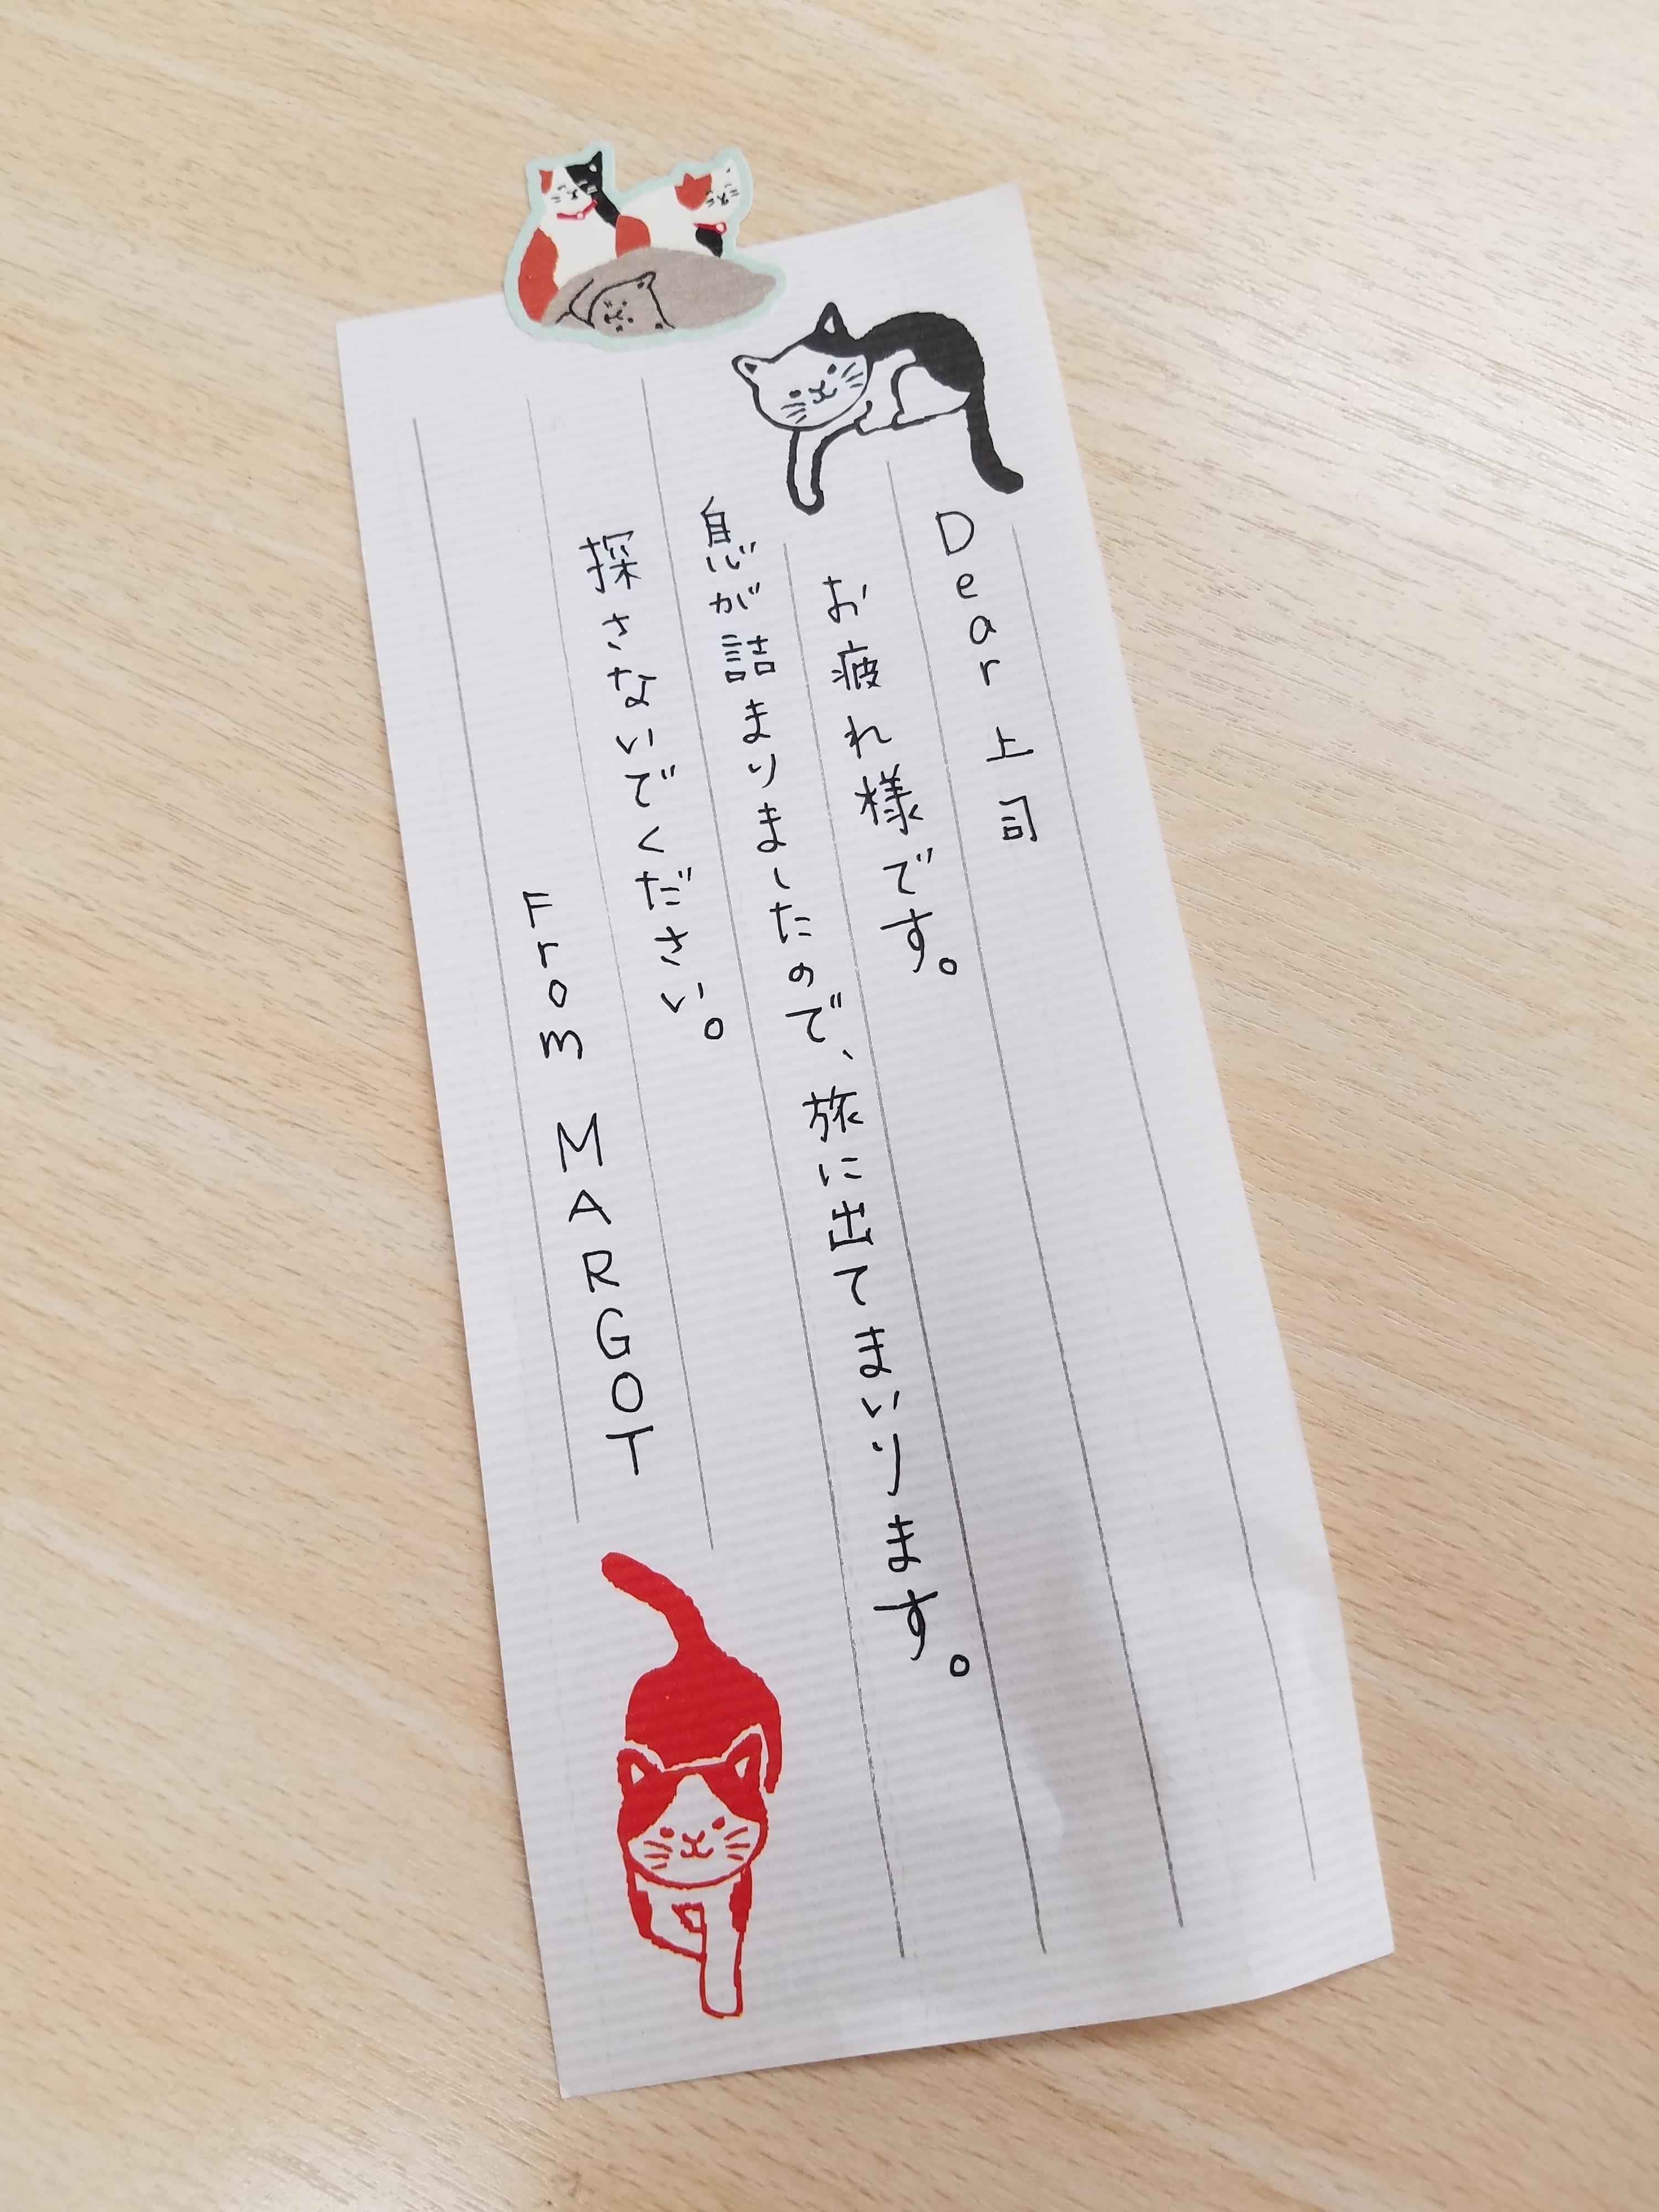 Dear 上司
お疲れ様です。
息が詰まりましたので、旅に出てまいります。
探さないでください。
From MARGOT